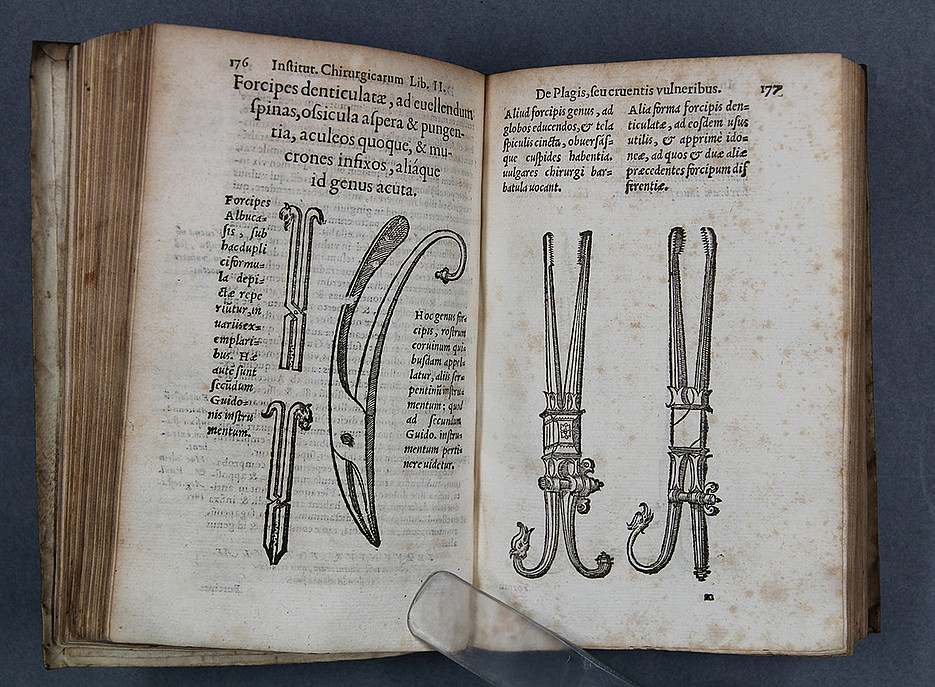 176 Institut. Chirurgicarum Lib. II.
Forcipes denticulatæ, ad euellendum
spinas, ossicula aspera & pungen-
tia, aculeos quoque, & mu-
crones infixos, aliáque
id genus acuta.
Forcipes
Albuca=
sis, sub
hac dupli
ci formu=
la depi=
ctæ repe
riūtur, in
uariis ex=
emplari=
bus. Hæ
autē sunt
secūdum
Guido=
nis instru
mentum.
Hoc genus for=
cipis, rostrum
coruinum qui
busdam appel=
latur, aliis ser=
pentinū instru=
mentum; quod
ad secundum
Guido. instru=
mentum perti=
nere uidetur.
Forcipes
De Plagis, seu cruentis vulneribus. 177
Aliud forcipis genus, ad
globos educendos, & tela
spiculis cincta, obuersās=
que cuspides habentia.
uulgares chirurgi bar=
batula uocant.
Alia forma forcipis den=
ticulatæ, ad eosdem usus
utilis, & apprimè ido=
neæ, ad quos & duæ aliæ
præcedentes forcipum dif
ferentiæ.